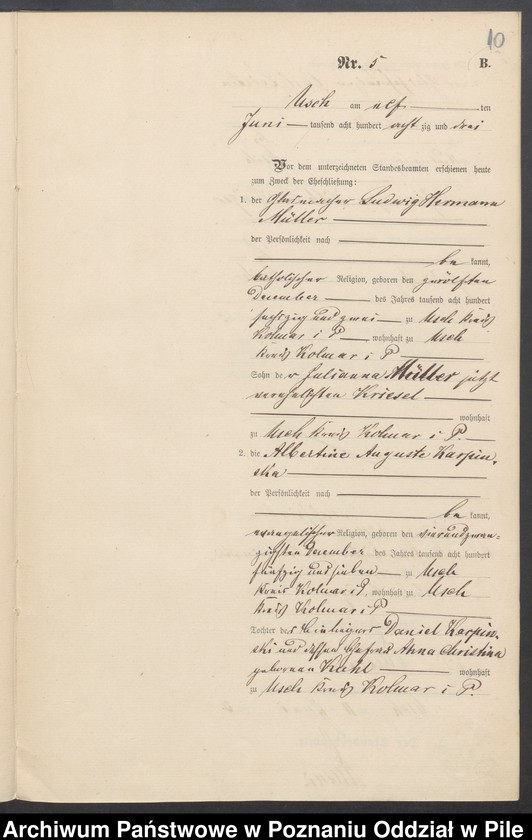 10
Nr. 5 B.
Usch am elf ten
Juni tausend acht hundert acht zig und drei
Vor dem unterzeichneten Standesbeamten erschienen heute
zum Zweck der Eheschließung:
1. der Glasmacher Ludwig Hermann
Müller
der Persönlichkeit nach
be kannt,
katholischer Religion, geboren den zwölften
December des Jahres tausend acht hundert
sechszig und zwei zu Usch Kreis
Kolmar i P wohnhaft zu Usch
Kreis Kolmar i P
Sohn der Julianna Müller jetzt
verehelichten Kriesel
wohnhaft
zu Usch Kreis Kolmar i P.
2. die Albertine Auguste Karpin-
ska
der Persönlichkeit nach
be kannt,
evangelischer Religion, geboren den vierundzwan-
zigsten December des Jahres tausend acht hundert
fünfzig und sieben zu Usch
Kreis Kolmar i P, wohnhaft zu Usch
Kreis Kolmar i P
Tochter des Einliegers Daniel Karpin-
ski und dessen Ehefrau Anna Christina
geborenen Kuhl wohnhaft
zu Usch Kreis Kolmar i P.
Archiwum Państwowe w Poznaniu Oddział w Pile